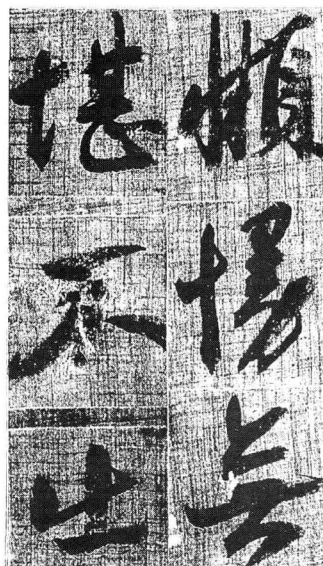 懶慢無
堪不出